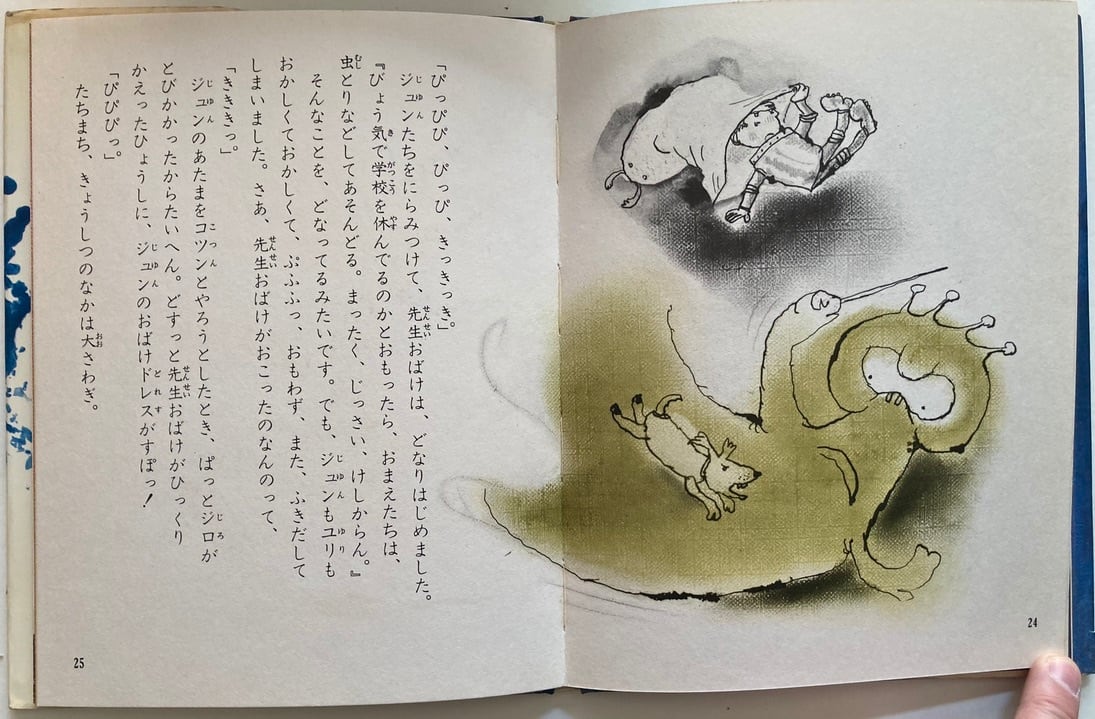 24
「ぴっぴぴ、ぴっぴ、きっきっき」。
ジュンたちをにらみつけて、先生おばけは、どなりはじめました。
『びょう気で学校を休んでるのかとおもったら、おまえたちは、
虫とりなどしてあそんどる。まったく、じっさい、けしからん。』
そんなことを、どなってるみたいです。でも、ジュンもユリも
おかしくておかしくて、ぷふふっ、おもわず、また、ふきだして
しまいました。さあ、先生おばけがおこったのなんのって、
「きききっ。」
ジュンのあたまをコツンとやろうとしたとき、ぱっとジロが
とびかかったからたいへん。どすっと先生おばけがひっくり
かえったひょうしに、ジュンのおばけドレスがすぽっ！
「ぴぴぴっ。」
たちまち、きょうしつのなかは大さわぎ。
25